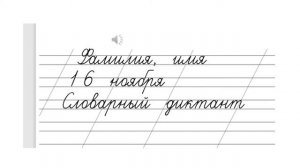 Фамилия, имя
16 ноября
Словарный диктант